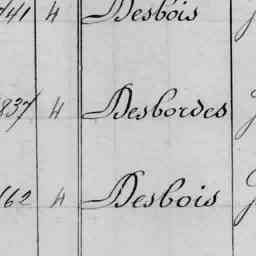 741 4 Desbois
837 4 Desbordes
162 4 Desbois